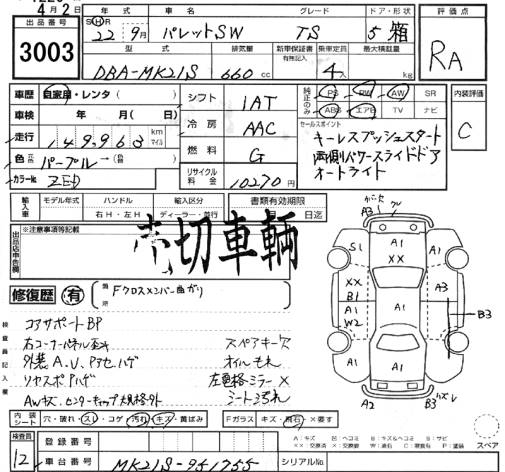 4月2日
出品番号
3003
年式 車名 グレード ドア・形状 評価点
SHR 22年 9月 パレットSW TS 5 箱 RA
型式 排気量 新車保証書 有無記入 乗車定員 最大積載量
DBA-MK21S 660cc 4人 kg
車歴 自家用・レンタ( )
車検 年 月( 日)
走行 149963 km マイル
色 元色 パープル→( 色替 )
カラーNo ZED
シフト IAT
冷房 AAC
燃料 G
リサイクル料金 10270円
純正のみ PS PW AW SR
ABS エアB TV ナビ
内装評価
C
セールスポイント
キーレスプッシュスタート
両側パワースライドドア
オートライト
輸入車 モデル年式 ハンドル 輸入区分 書類有効期限
年 右H・左H ディーラー・並行 月 日迄
出品店申告欄 ※注意事項等記載
売切車輌
修復歴 有 箇所 Fクロスメンバー曲がり
検査員記入欄
コアサポートBP
右コーナーパネル歪み スペアキー欠
外装A.U.Pアセハゲ オイルもれ
リヤスポAハゲ 左電格ミラー×
AWキズ、センターキャップ規格外 シート汚れ
ガバ欠
A3 グレ
S1 A1 XX A1
XX B1 A1 W2 A1 A3 B3
A1 A1
A2 B3 カズレ
内装シート 穴・破れ・スレ・コゲ・汚れ・キズ・黄ばみ Fガラス キズ・飛石・×要す
検査員 12
登録番号
車台番号 MK21S-951755 シリアルNo.
A:キズ E:ヘコミ B:キズ&ヘコミ S:サビ
スペア